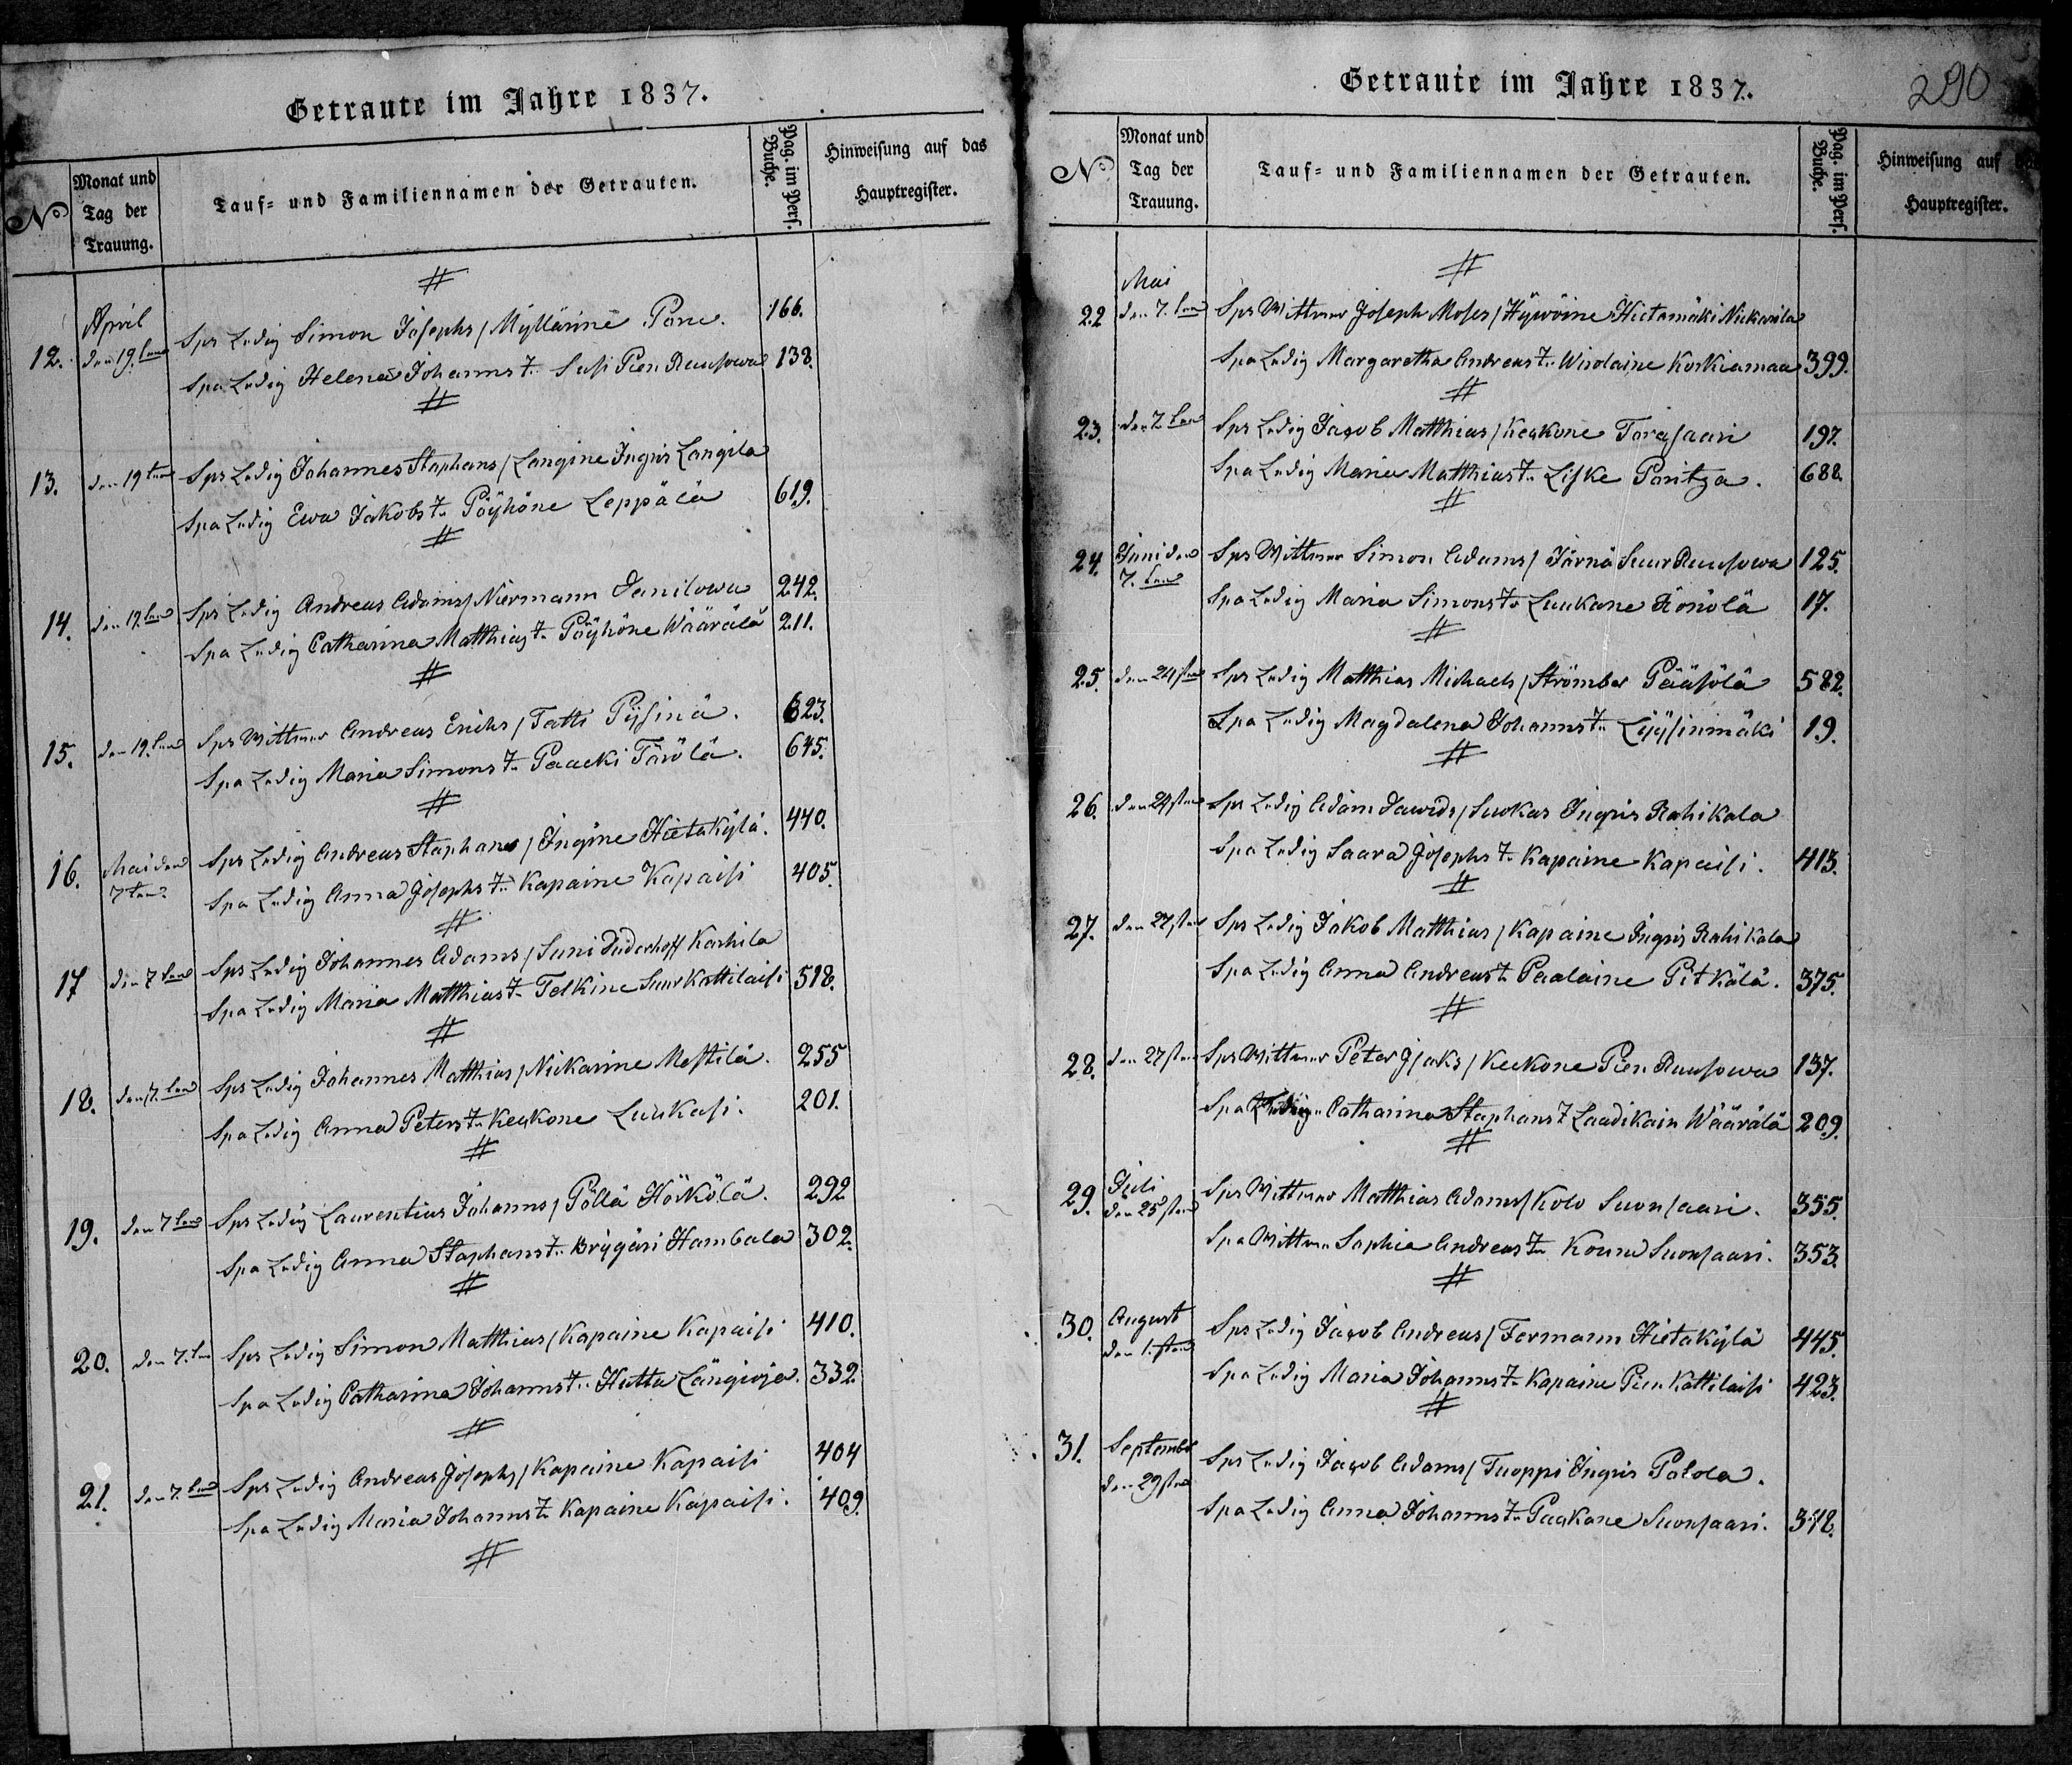 Getraute im Jahre 1837.
No
Monat und Tag der Trauung.
Tauf- und Familiennamen der Getrauten.
Pag. im Pers. Buche.
Hinweisung auf das Hauptregister.
April
12. den 19. ten Sps Ledig Simon Josephs/ Myllärine Pone. 166.
Spa Ledig Helena Johannst. Susi Pien Ruusowa 138.
13. den 19 ten Sps Ledig Johannes Staphans/ Langine Ingris Langila
Spa Ledig Ewa Jakobst. Pöyhöne Leppälä 619.
14. den 19. ten Sps Ledig Andreas Adams/ Niermann Danilowa 242.
Spa Ledig Catharina Matthiast. Pöyhöne Wäärälä 211.
15. den 19. ten Sps Wittwer Andreas Erichs/ Tatti Pysinä. 623.
Spa Ledig Maria Simonst. Paacki Törölä. 645.
16. Mai den 7 ten Sps Ledig Andreas Staphans/ Ingine Hietakylä. 440.
Spa Ledig Anna Josephst. Kapaine Kapaisi 405.
17 den 7 ten Sps Ledig Johannes Adams/ Suni Duderhoff Karhila
Spa Ledig Maria Matthiast. Telkine Suur Kattilaisi 518.
18. den 7. ten Sps Ledig Johannes Matthias/ Nickarine Mestilä. 255
Spa Ledig Anna Peterst. Keckone Luukasi. 201.
19. den 7 ten Sps Ledig Laurentius Johanns/ Pöllä Hörkölä. 292
Spa Ledig Anna Staphanst. Brygäri Hambala 302.
20. den 7. ten Sps Ledig Simon Matthias/ Kapaine Kapaisi 410.
Spa Ledig Catharina Johannst. Hutta Längioja. 332.
21. den 7. ten Sps Ledig Andreas Josephs/ Kapaine Kapaisi 404
Spa Ledig Maria Johannst. Kapaine Kapaisi. 409.
Getraute im Jahre 1837.
290
No
Monat und Tag der Trauung.
Tauf- und Familiennamen der Getrauten.
Pag. im Pers. Buche.
Hinweisung auf Hauptregister.
Mai
22 den 7. ten Sps Wittwer Joseph Moses/ Hywöine Hietamäki Nickarila
Spa Ledig Margaretha Andreast. Wirolaine Korkiamaa 399.
23. den 7. ten Sps Ledig Jacob Matthias/ Keckone Torasaari 197.
Spa Ledig Maria Matthiast. Liske Poritza. 688.
24. Juni den 7. ten Sps Wittwer Simon Adams/ Järnä Suur Ruusowa 125.
Spa Ledig Maria Simonst. Luukane Könölä 17.
25. den 24 sten Sps Ledig Matthias Michaels/ Strömber Pääsölä 582.
Spa Ledig Magdalena Johannst. Lyysinmäki 19.
26. den 24 sten Sps Ledig Adam Dawids/ Suokas Ingris Rahikala
Spa Ledig Saara Josephst. Kapaine Kapaisi. 413.
27. den 27 sten Sps Ledig Jakob Matthias/ Kapaine Ingris Rahikala
Spa Ledig Anna Andreast. Paalaine Pitkälä. 375.
28. den 27 sten Sps Wittwer Peter Isaks/ Keckone Pien Ruusowa 137.
Spa Catharina Staphanst. Laadikain Wäärälä 209.
29. Juli den 25 sten Sps Wittwer Matthias Adams/ Kolo Suonsaari. 355.
Spa Wittwe Sophia Andreast. Konna Suonsaari. 353.
30. August den 1. sten Sps Ledig Jacob Andreas/ Formann Hietakylä 445.
Spa Ledig Maria Johannst. Kapaine Pien Kattilaisi 423.
31. September den 29 sten Sps Ledig Jacob Adams/ Tuoppi Ingris Potola.
Spa Ledig Anna Johannst. Paakone Suonsaari. 348.